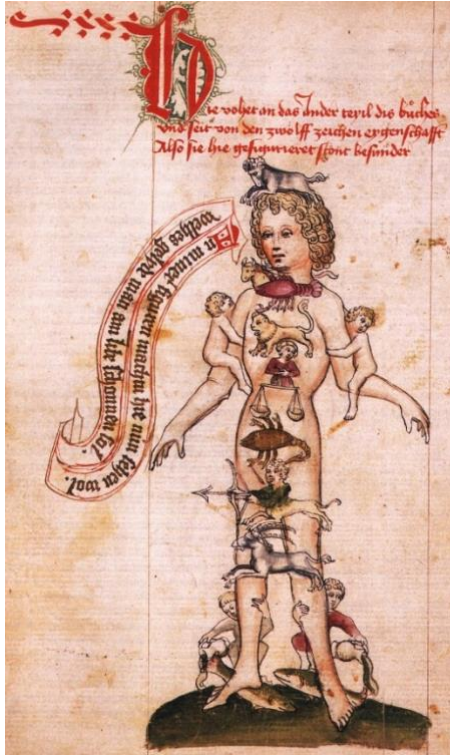 Hie vohet an das Ander teyil dis bůches
Vnd seit von den zwölff zeichen eygenschafft
Also sie hie gefigurieret stont besunder
In miner figuren machtu hie nun sehen wol.
welhes gelide man am libe schonnen sol.